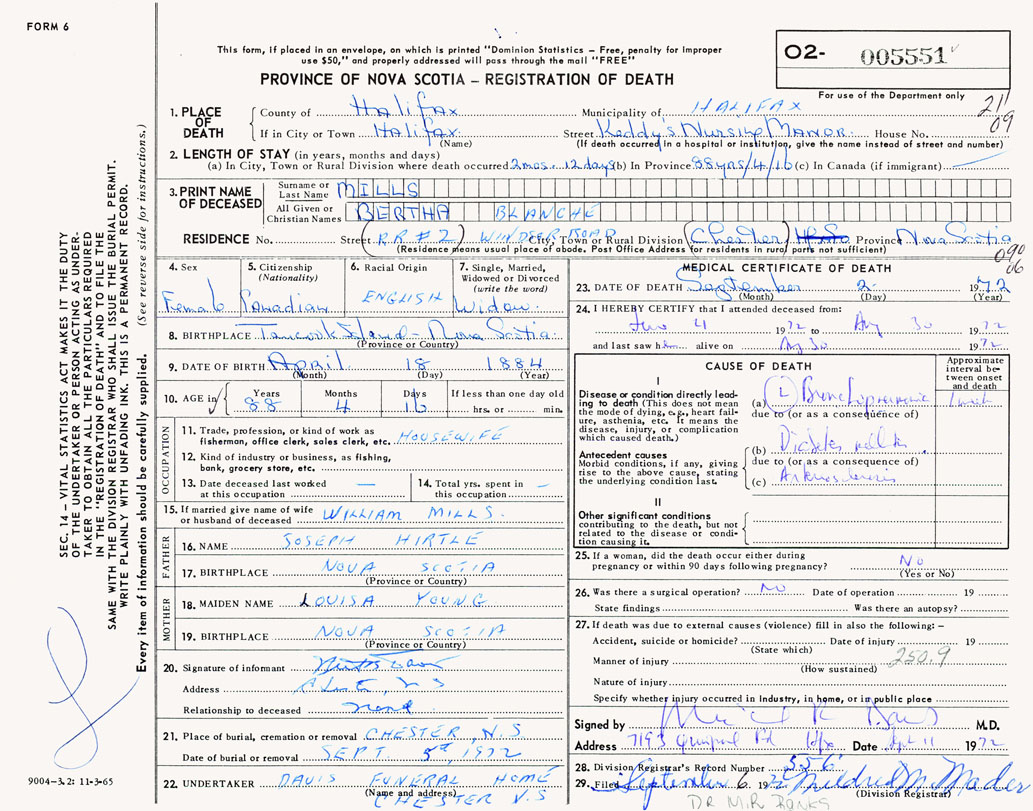 FORM 6
This form, if placed in an envelope, on which is printed "Dominion Statistics – Free, penalty for improper
use $50," and properly addressed will pass through the mail "FREE"
PROVINCE OF NOVA SCOTIA – REGISTRATION OF DEATH
O2- 005551
For use of the Department only
211
09
1. PLACE OF DEATH
County of Halifax Municipality of HALIFAX
If in City or Town Halifax Street Keddy's Nursing Manor House No.
(Name) (If death occurred in a hospital or institution, give the name instead of street and number)
2. LENGTH OF STAY (in years, months and days)
(a) In City, Town or Rural Division where death occurred 2 mos. 12 days (b) In Province 88 yrs/4/16 (c) In Canada (if immigrant)
3. PRINT NAME OF DECEASED
Surname or Last Name MILLS
All Given or Christian Names BERTHA BLANCHE
RESIDENCE No. Street (RR #2) WINDSOR ROAD City, Town or Rural Division (Chester) Province Nova Scotia
(Residence means usual place of abode. Post Office Address for residents in rural parts not sufficient)
090
06
4. Sex
Female
5. Citizenship (Nationality)
Canadian
6. Racial Origin
ENGLISH
7. Single, Married, Widowed or Divorced (write the word)
Widow
8. BIRTHPLACE Tancook Island - Nova Scotia
(Province or Country)
9. DATE OF BIRTH April 18 1884
(Month) (Day) (Year)
10. AGE in Years Months Days If less than one day old
88 4 16 hrs. or min.
OCCUPATION
11. Trade, profession, or kind of work as fisherman, office clerk, sales clerk, etc. HOUSEWIFE
12. Kind of industry or business, as fishing, bank, grocery store, etc.
13. Date deceased last worked at this occupation —
14. Total yrs. spent in this occupation –
15. If married give name of wife or husband of deceased WILLIAM MILLS.
FATHER
16. NAME JOSEPH HIRTLE
17. BIRTHPLACE NOVA SCOTIA
(Province or Country)
MOTHER
18. MAIDEN NAME LOUISA YOUNG
19. BIRTHPLACE NOVA SCOTIA
(Province or Country)
20. Signature of informant
Address
Relationship to deceased
21. Place of burial, cremation or removal CHESTER, N.S.
Date of burial or removal SEPT. 5th, 1972
22. UNDERTAKER DAVIS FUNERAL HOME
(Name and address) CHESTER N.S
MEDICAL CERTIFICATE OF DEATH
23. DATE OF DEATH September 2 1972
(Month) (Day) (Year)
24. I HEREBY CERTIFY that I attended deceased from:
1972 to Aug 30 1972
and last saw her alive on Aug 30 1972
CAUSE OF DEATH
Approximate interval between onset and death
I
Disease or condition directly leading to death (This does not mean the mode of dying, e.g., heart failure, asthenia, etc. It means the disease, injury, or complication which caused death.)
(a) Bronchopneumonia 1 week
due to (or as a consequence of)
Antecedent causes
Morbid conditions, if any, giving rise to the above cause, stating the underlying condition last.
(b) Diabetes mellitus
due to (or as a consequence of)
(c) Arteriosclerosis
II
Other significant conditions contributing to the death, but not related to the disease or condition causing it.
25. If a woman, did the death occur either during pregnancy or within 90 days following pregnancy? No
(Yes or No)
26. Was there a surgical operation? No Date of operation 19
State findings Was there an autopsy?
27. If death was due to external causes (violence) fill in also the following: –
Accident, suicide or homicide? Date of injury 19
(State which)
Manner of injury 250.9
(How sustained)
Nature of injury
Specify whether injury occurred in Industry, in home, or in public place
Signed by M.D.
Address 7193 Quinpool Rd Hfx Date Sept 11 1972
28. Division Registrar's Record Number 556
29. Filed September 6 1972 Mildred M. Mader
(Division Registrar)
DR M.R. BANKS
SEC. 14 – VITAL STATISTICS ACT MAKES IT THE DUTY
OF THE UNDERTAKER OR PERSON ACTING AS UNDER-
TAKER TO OBTAIN ALL THE PARTICULARS REQUIRED
IN THE "REGISTRATION OF DEATH" AND TO FILE THE
SAME WITH THE DIVISION REGISTRAR WHO SHALL ISSUE THE BURIAL PERMIT.
WRITE PLAINLY WITH UNFADING INK. THIS IS A PERMANENT RECORD.
Every item of information should be carefully supplied. (See reverse side for instructions.)
9004-3.2: 11-3-65